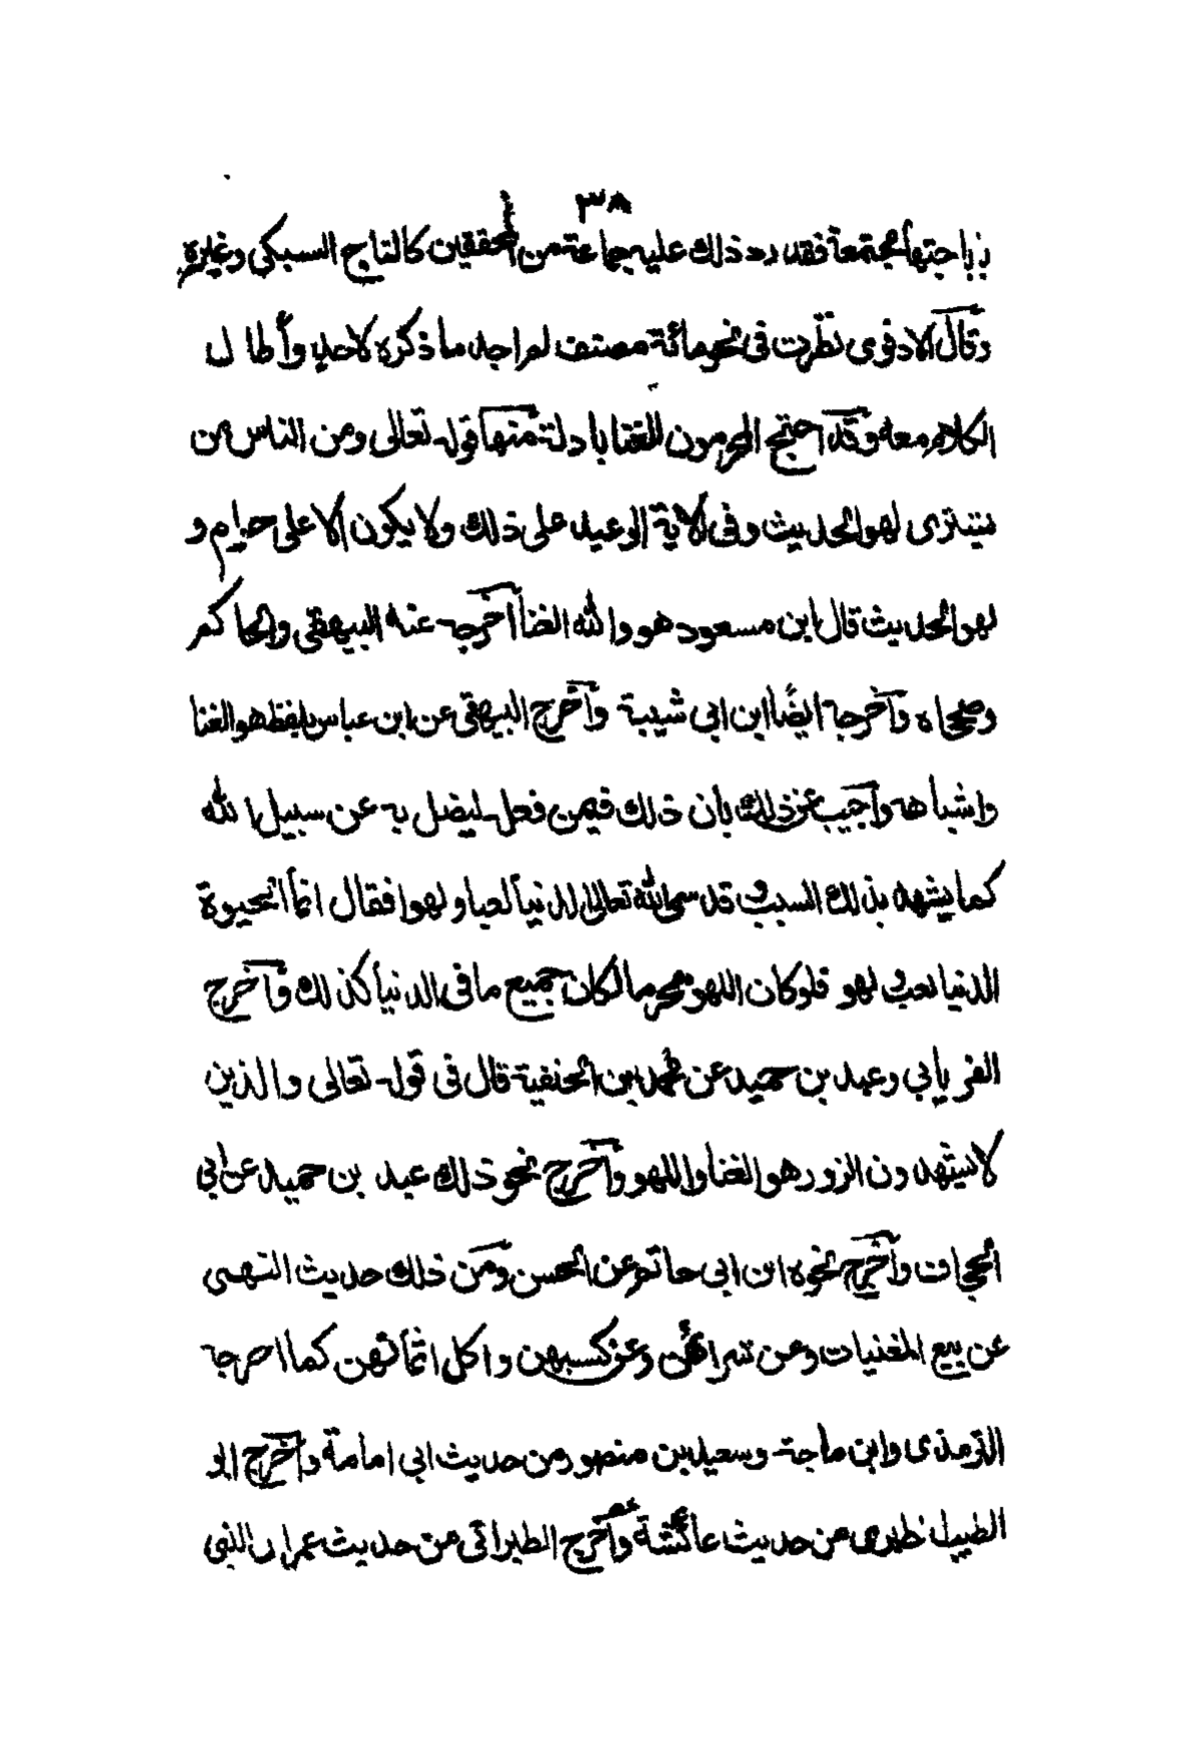 ٣٨
باباحتها مجتمعة فقد رد ذلك عليه جماعة من المحققين كالتاج السبكى وغيره
وقال الادفوى نظرت فى نحو مائة مصنف لم اجد ما ذكره لاحد وأطال
الكلام معه وقد احتج المحرمون للغنا بادلة منها قوله تعالى ومن الناس من
يشترى لهو الحديث وفى الاية الوعيد على ذلك ولا يكون الا على حرام و
لهو الحديث قال ابن مسعود هو والله الغنا أخرجه عنه البيهقى والحاكم
وصححاه وأخرجه ايضًا ابن ابى شيبة وأخرج البيهقى عن ابن عباس بلفظ هو الغنا
واشباهه وأجيب عن ذلك بان ذلك فيمن فعل ليضل به عن سبيل الله
كما يشهد بذلك السبب وقد سمى الله تعالى الدنيا لعبا ولهوا فقال انما الحيوة
الدنيا لعب ولهو فلو كان اللهو محرما لكان جميع ما فى الدنيا كذلك وأخرج
الفريابي وعبد بن حميد عن محمد بن الحنفية قال فى قوله تعالى والذين
لا يشهدون الزور هو الغنا واللهو وأخرج نحو ذلك عبد بن حميد عن ابي
الحجاف وأخرج نحوه ابن ابى حاتم عن الحسن ومن ذلك حديث النهى
عن بيع المغنيات وعن شرائهن وعن كسبهن واكل اثمانهن كما اخرجه
الترمذى وابن ماجة وسعيد بن منصور من حديث ابى امامة وأخرج ابو
الطيب الطبرى من حديث عائشة وأخرج الطبرانى من حديث عمر ان النبى